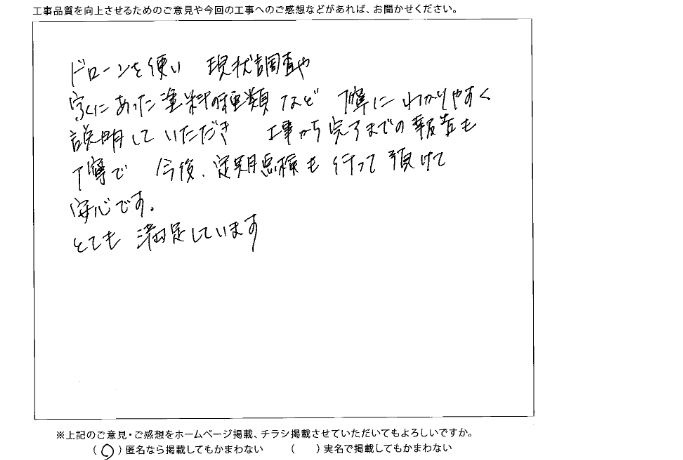 工事品質を向上させるためのご意見や今回の工事へのご感想などがあれば、お聞かせください。
ドローンを使い 現状調査や
家にあった塗料の種類など 丁寧にわかりやすく
説明していただき 工事から完了までの報告も
丁寧で 今後、定期点検も行って頂けて
安心です。
とても 満足しています
※上記のご意見・ご感想をホームページ掲載、チラシ掲載させていただいてもよろしいですか。
(○)匿名なら掲載してもかまわない ( )実名で掲載してもかまわない